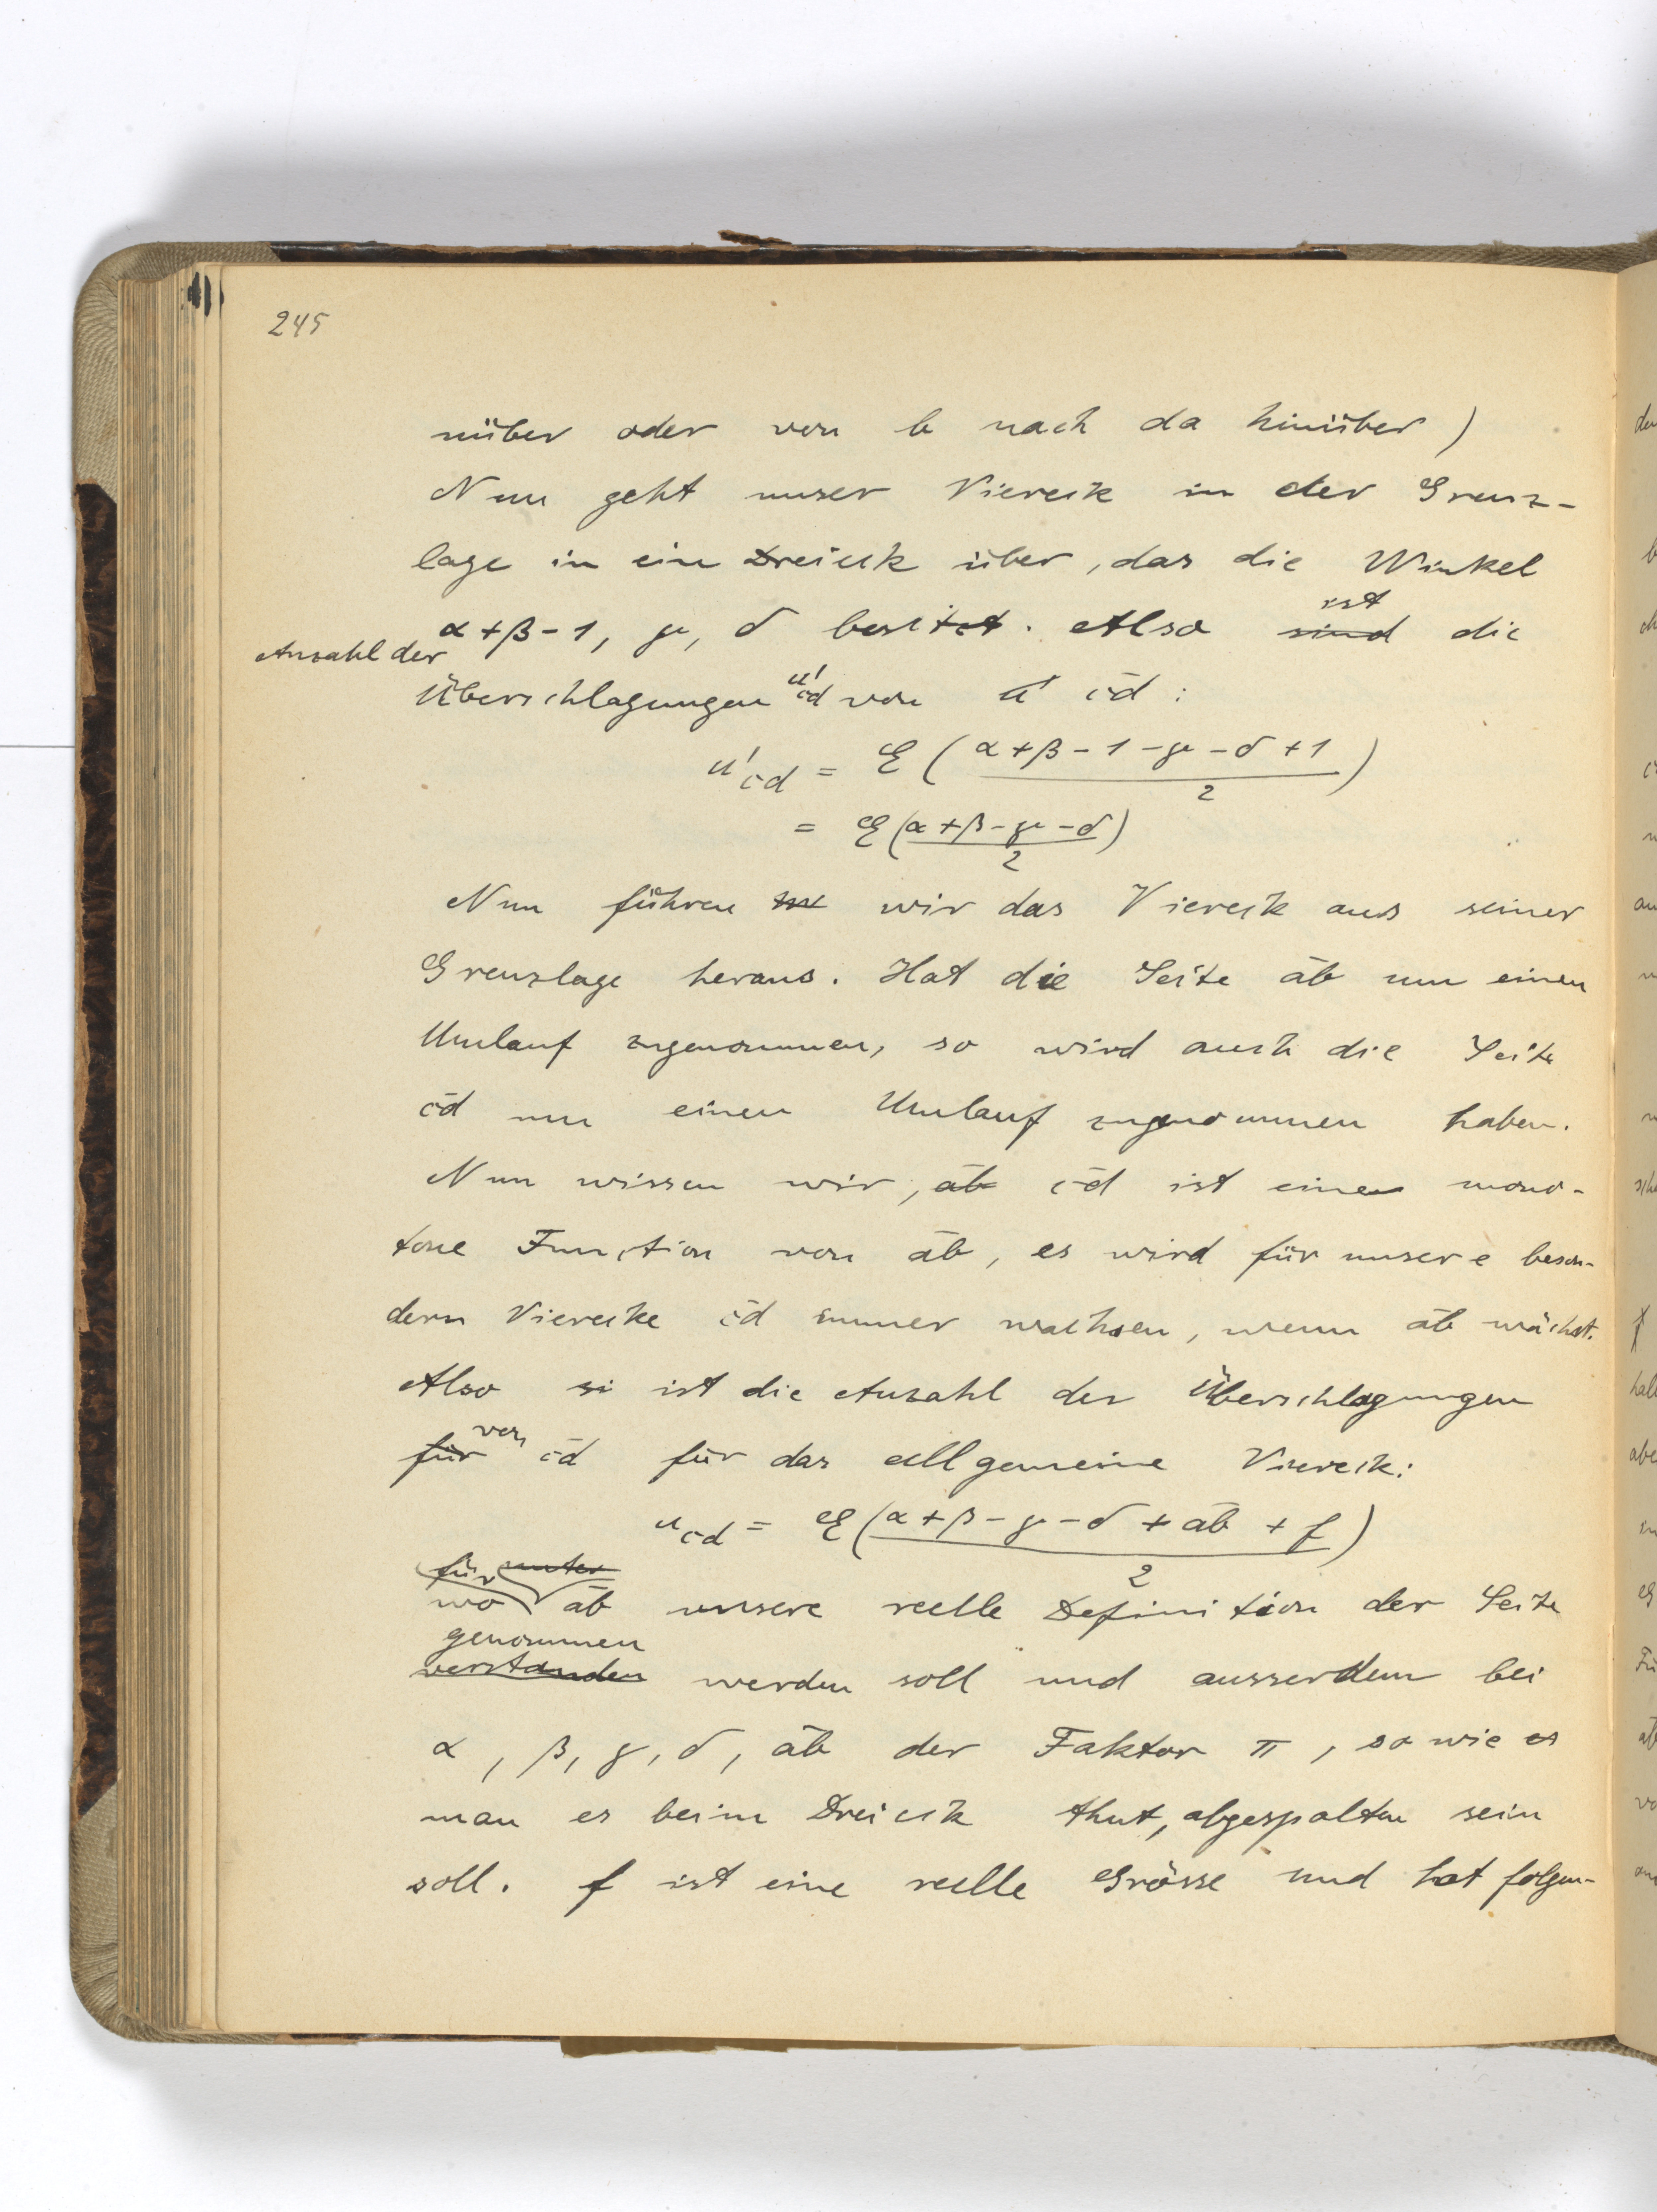 245
nüber oder von b nach da hinüber)
Nun geht unser Viereck in der Grenz-
lage in ein Dreieck über, das die Winkel
α+β-1, γ, δ besitzt. Also ~~sind~~ ist die
Anzahl der
Überschlagungen u'cd von ~~u'~~ c̄d :
u'cd = E (α+β-1-γ-δ+1 / 2)
= E (α+β-γ-δ / 2)
Nun führen wir das Viereck aus seiner
Grenzlage heraus. Hat die Seite āb um einen
Umlauf zugenommen, so wird auch die Seite
c̄d um einen Umlauf zugenommen haben.
Nun wissen wir, ~~āb~~ c̄d ist eine mono-
tone Function von āb, es wird für unsere beson-
dern Vierecke c̄d immer wachsen, wenn āb wächst.
Also ~~si~~ ist die Anzahl der Überschlagungen
~~für~~ von c̄d für das allgemeine Viereck:
ucd = E (α+β-γ-δ+āb+f / 2)
wo für ~~unter~~ āb unsere reelle Definition der Seite
genommen
~~verstanden~~ werden soll und ausserdem bei
α, β, γ, δ, āb der Faktor π, so wie es
man es beim Dreieck thut, abgespalten sein
soll. f ist eine reelle Grösse und hat folgen-